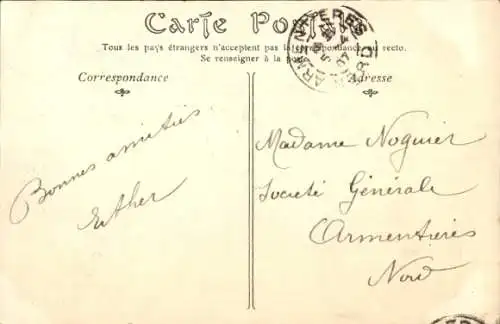 Carte Postale
ARMENTIÈRES
NORD
Tous les pays étrangers n'acceptent pas la correspondance au recto.
Se renseigner à la poste
Correspondance
Adresse
Bonnes amitiés
Esther
Madame Noguier
Societé Générale
Armentières
Nord